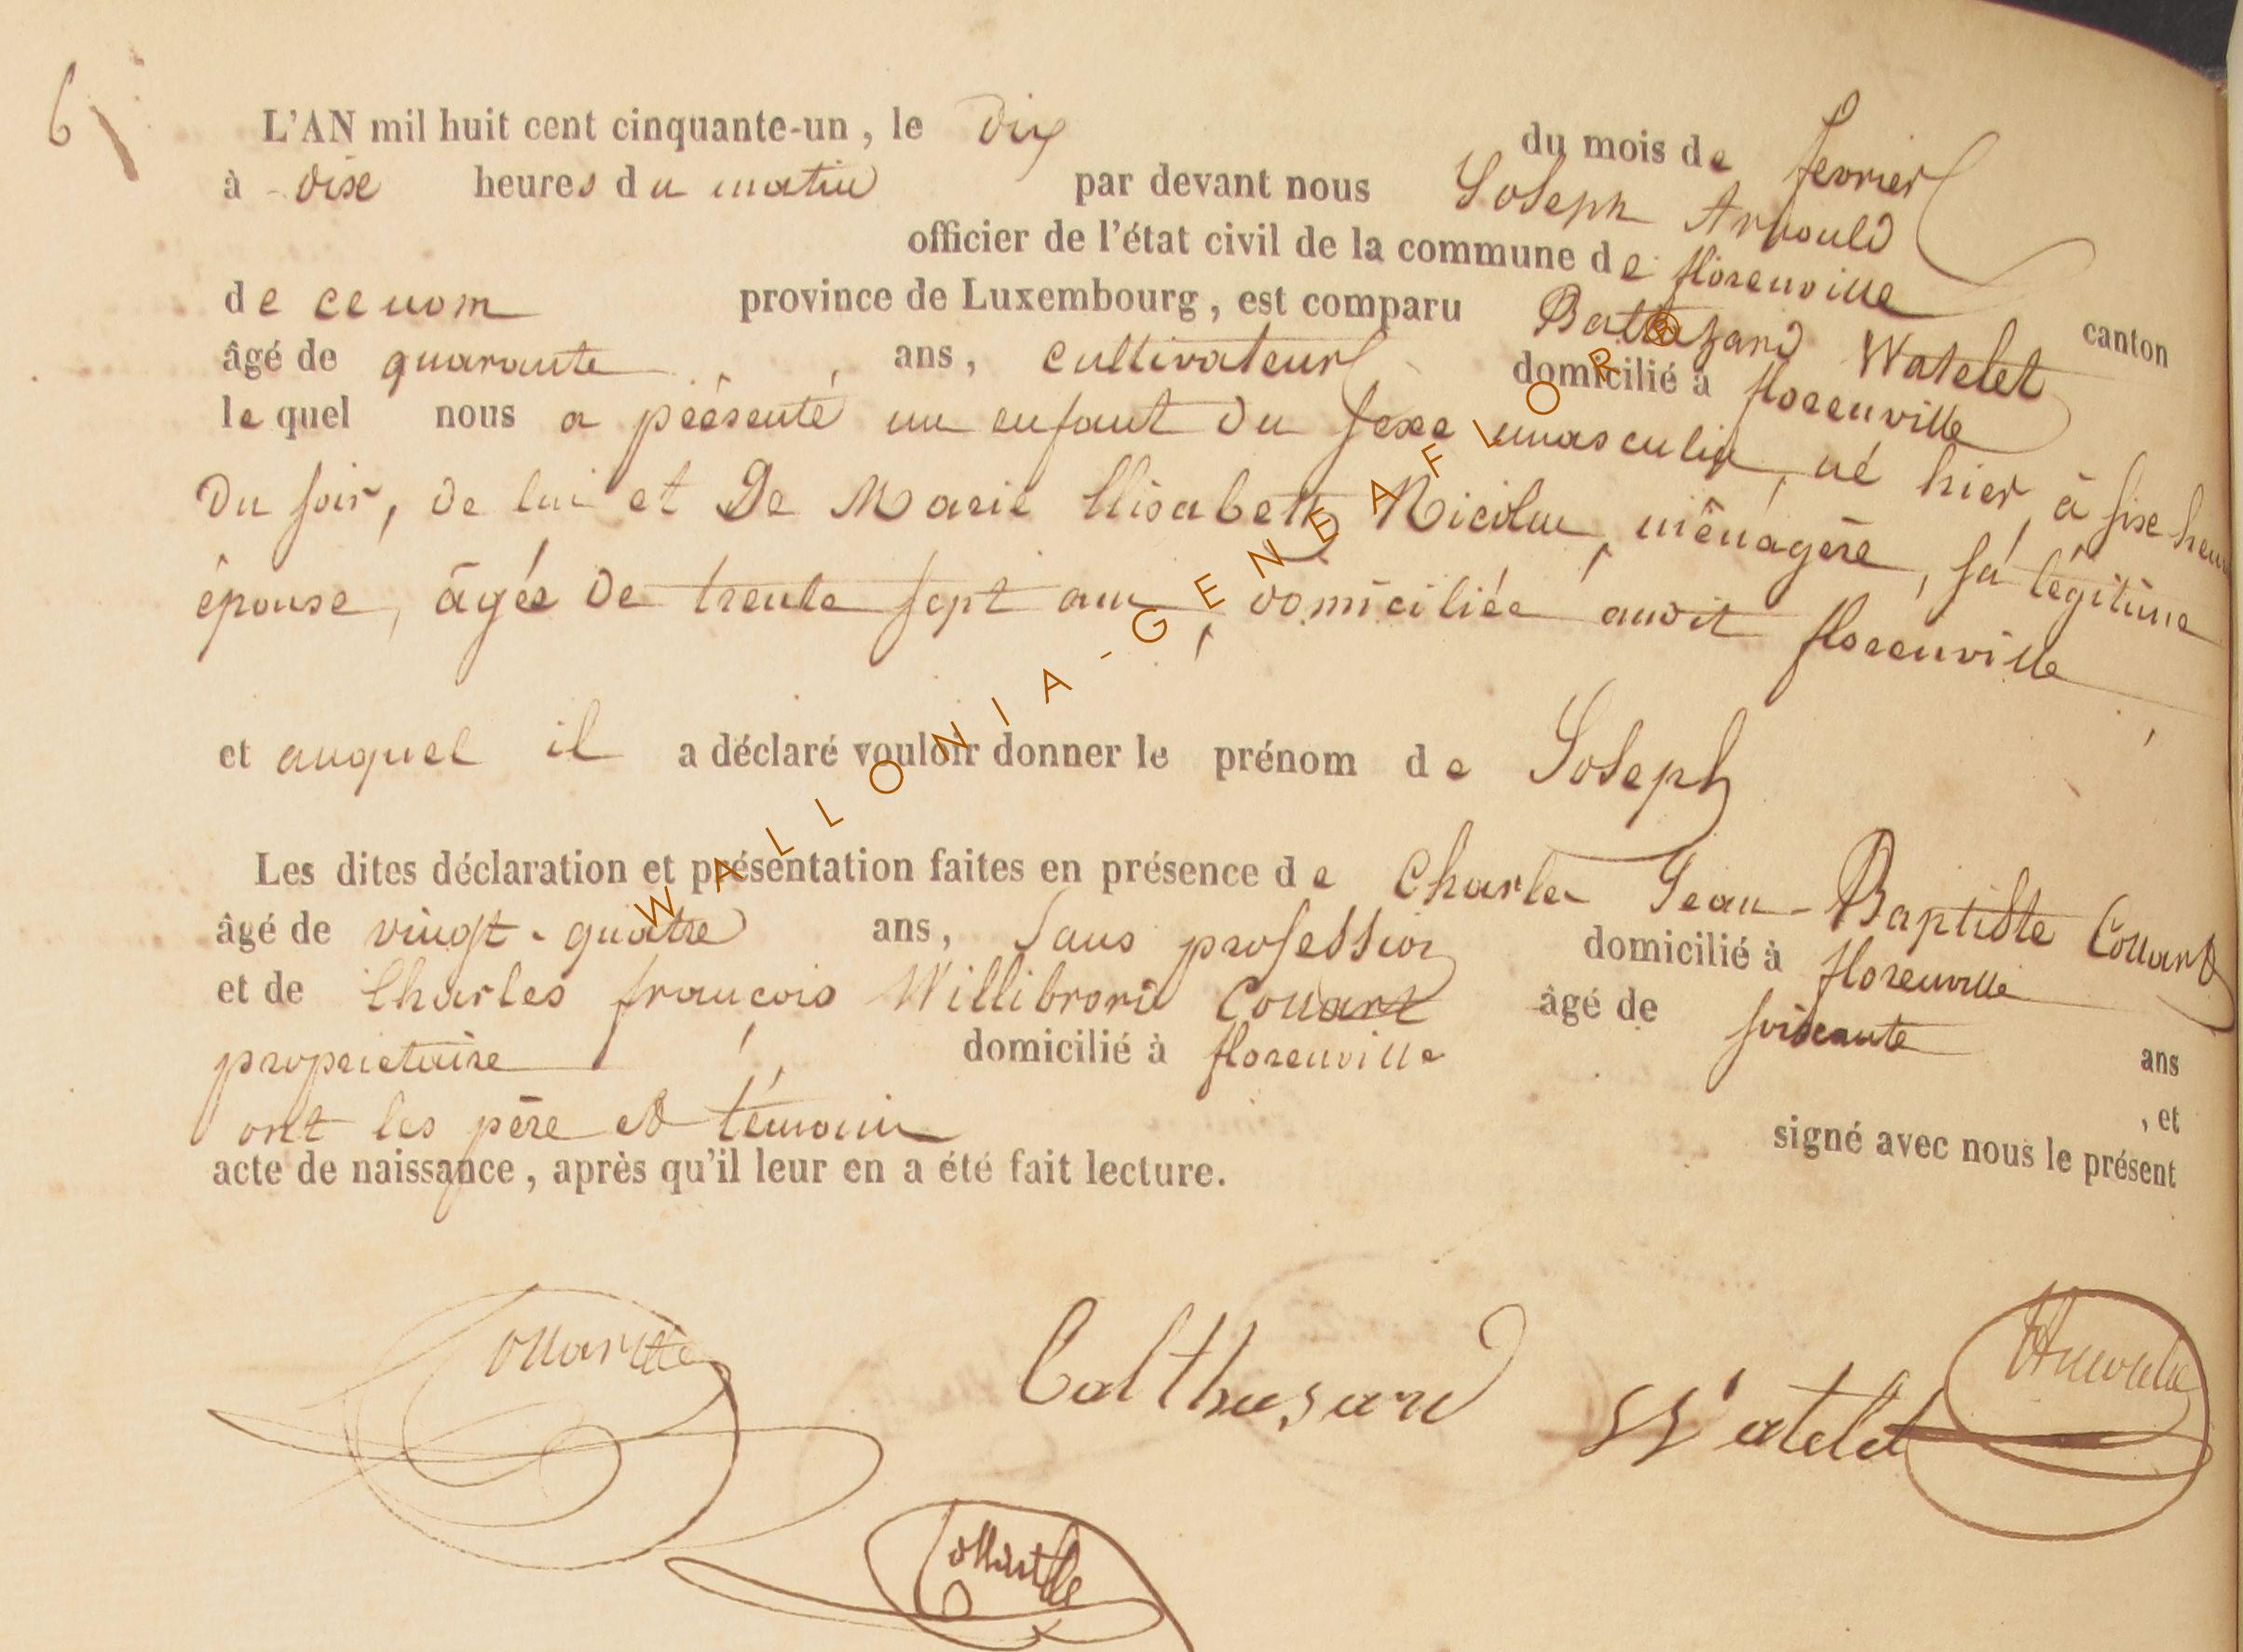 6
L'AN mil huit cent cinquante-un, le dix du mois de fevrier
à dixe heures du matin par devant nous Joseph Arnould
officier de l'état civil de la commune de florenville canton
de ce nom province de Luxembourg, est comparu Baltazard Watelet
âgé de quarante ans, cultivateur domicilié à florenville
le quel nous a présenté un enfant du sexe masculin, né hier, à sixe heu
du soir, de lui et De Marie Elisabeth Nicolas, ménagère, sa légitime
épouse, âgée de trente sept ans, domiciliée audit florenville
et auquel il a déclaré vouloir donner le prénom de Joseph
Les dites déclaration et présentation faites en présence de Charles Jean-Baptiste Collart
âgé de vingt-quatre ans, sans profession domicilié à florenville
et de Charles françois Willibrord Collart âgé de soixante ans
proprietaire domicilié à florenville , et
ont les père et témoins signé avec nous le présent
acte de naissance, après qu'il leur en a été fait lecture.
Balthasard Watelet
WALLONIA-GENEAFLOR®